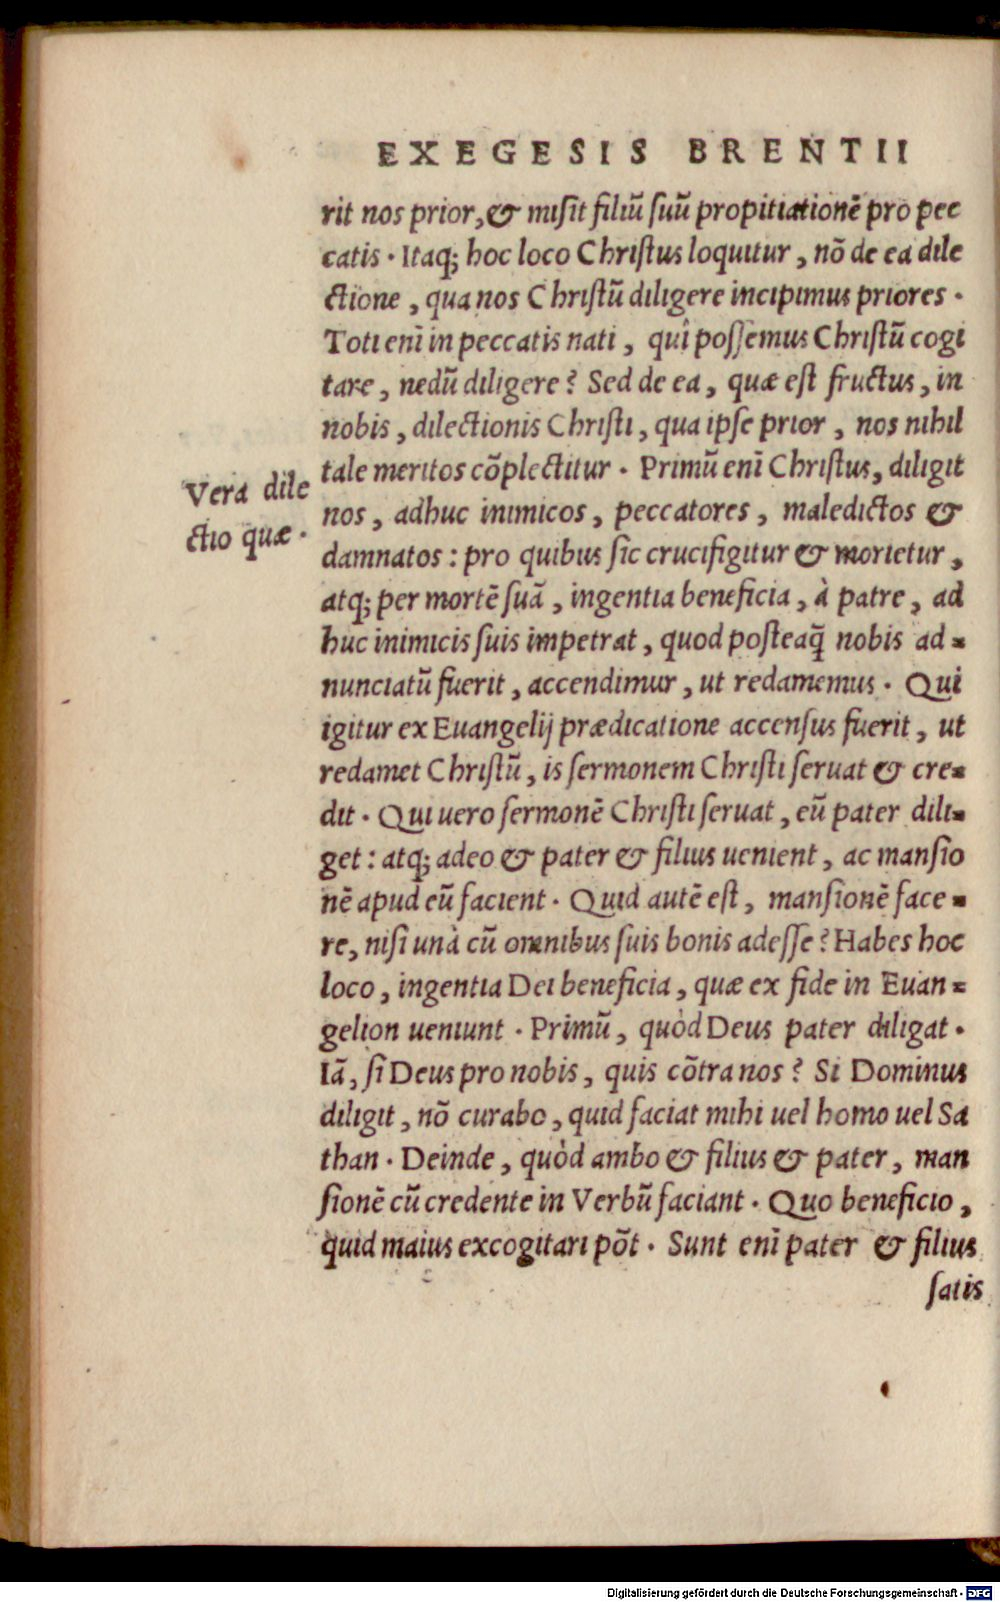 EXEGESIS BRENTII
rit nos prior, & misit filiũ suũ propitiationẽ pro pec
catis. Itaq; hoc loco Christus loquitur, nõ de ea dile
ctione, qua nos Christũ diligere incipimus priores.
Toti enĩ in peccatis nati, quî possemus Christũ cogi
tare, nedũ diligere? Sed de ea, quæ est fructus, in
nobis, dilectionis Christi, qua ipse prior, nos nihil
tale meritos cõplectitur. Primũ enĩ Christus, diligit
Vera dile
ctio quæ.
nos, adhuc inimicos, peccatores, maledictos &
damnatos: pro quibus sic crucifigitur & morietur,
atq; per mortẽ suã, ingentia beneficia, à patre, ad
huc inimicis suis impetrat, quod posteaq̃ nobis ad=
nunciatũ fuerit, accendimur, ut redamemus. Qui
igitur ex Euangelij prædicatione accensus fuerit, ut
redamet Christũ, is sermonem Christi seruat & cre=
dit. Qui uero sermonẽ Christi seruat, eũ pater dili=
get: atq; adeo & pater & filius uenient, ac mansio
nẽ apud eũ facient. Quid autẽ est, mansionẽ face=
re, nisi unà cũ omnibus suis bonis adesse? Habes hoc
loco, ingentia Dei beneficia, quæ ex fide in Euan=
gelion ueniunt. Primũ, quòd Deus pater diligat.
Iã, si Deus pro nobis, quis cõtra nos? Si Dominus
diligit, nõ curabo, quid faciat mihi uel homo uel Sa
than. Deinde, quòd ambo & filius & pater, man
sionẽ cũ credente in Verbũ faciant. Quo beneficio,
quid maius excogitari põt. Sunt enĩ pater & filius
satis
Digitalisierung gefördert durch die Deutsche Forschungsgemeinschaft - DFG